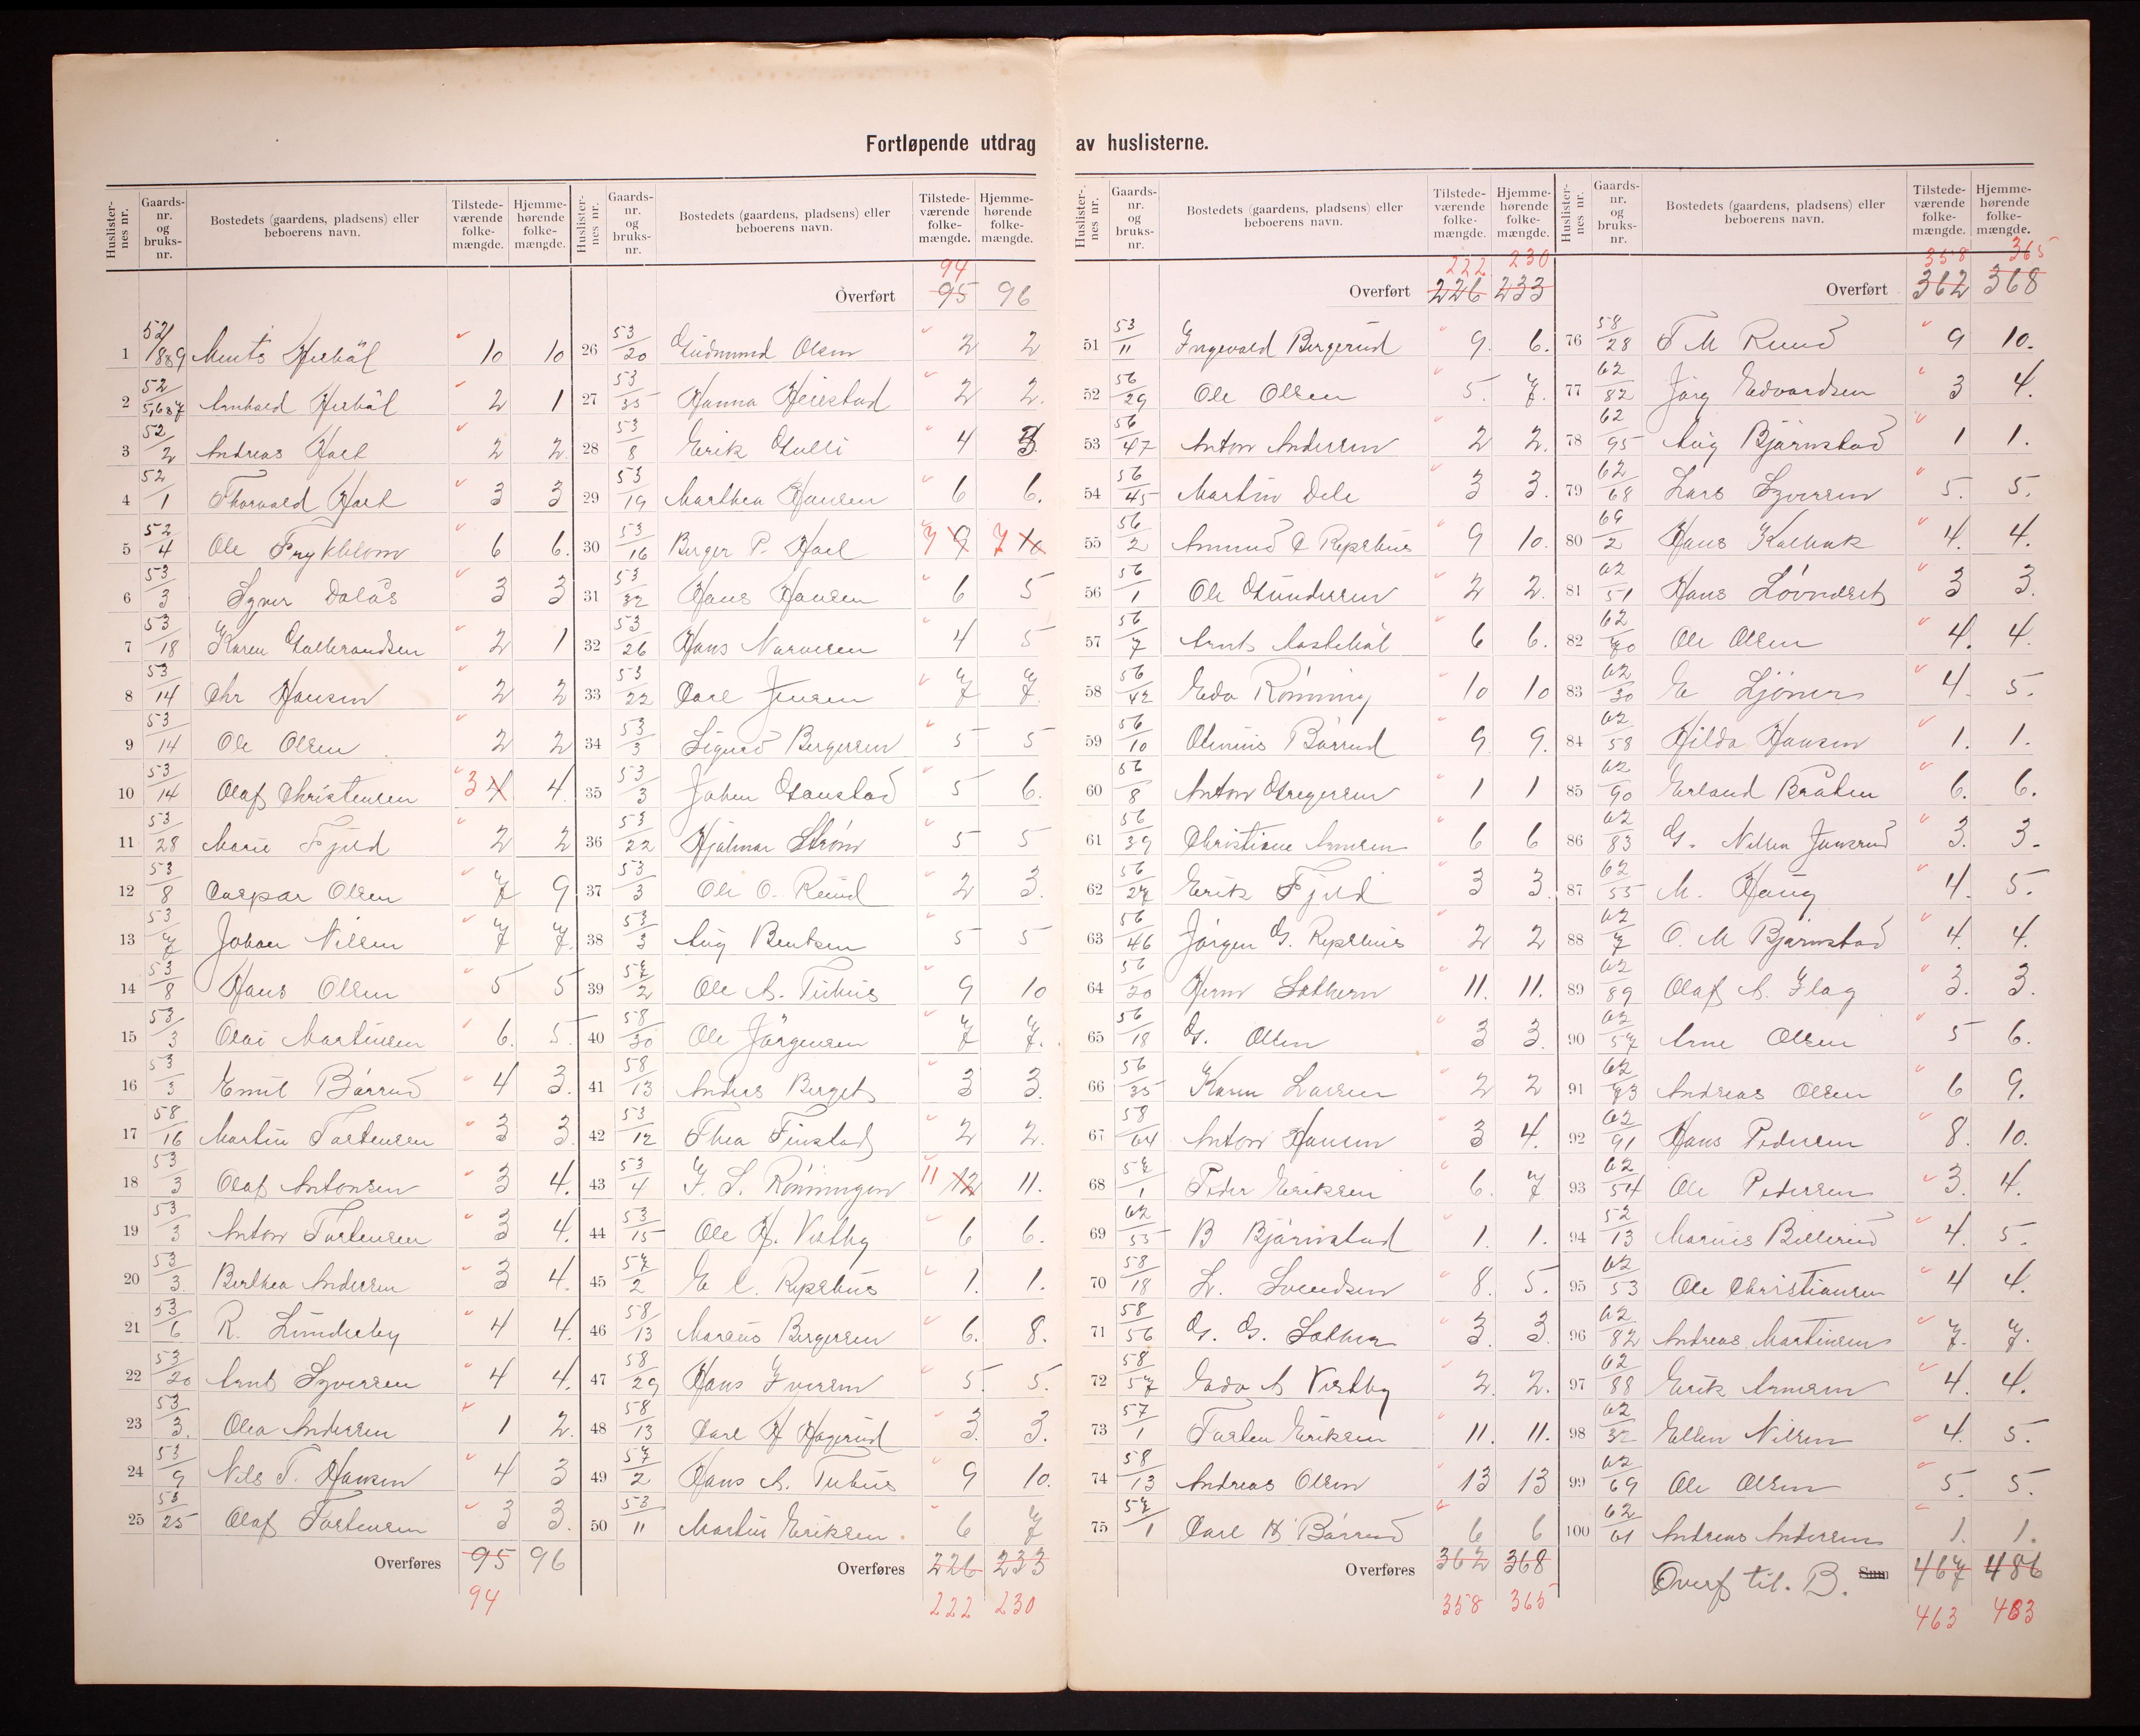 Fortløpende utdrag av huslisterne.
Huslisternes nr. Gaards-nr. og bruks-nr. Bostedets (gaardens, pladsens) eller beboerens navn. Tilstede-værende folke-mængde. Hjemme-hørende folke-mængde.
1 52/1889 10 10
2 52/5,6&7 2 1
3 52/2 Andreas Hael 2 2
4 52/1 Thorvald Hael 3 3
5 52/4 Ole Frykblom 6 6.
6 53/3 Syver Dalås 3 3
7 53/18 Karen Gulbrandsen 2 1
8 53/14 Chr Hansen 2 2
9 53/14 Ole Olsen 2 2
10 53/14 Olaf Christensen 3 4 4
11 53/28 Marie Fjeld 2 2
12 53/8 Caspar Olsen 7 9
13 53/7 Johan Nilsen 7 7.
14 53/8 Hans Olsen 5 5
15 53/3 Olai Martinsen 6. 5.
16 53/3 Emil Børrud 4 3.
17 58/16 Martin Tostensen 3 3.
18 53/3 Olaf Antonsen 3 4.
19 53/3 Anton Tostensen 3 4.
20 53/3. Berthea Andersen 3 4.
21 53/6 R. Lunderby 4 4.
22 53/20 Arnt Syversen 4 4.
23 53/3. Olea Andersen 1 2.
24 53/9 Nils T. Hansen 4 3
25 53/25 Olaf Tostensen 3 3.
Overføres 95 96
94
Huslisternes nr. Gaards-nr. og bruks-nr. Bostedets (gaardens, pladsens) eller beboerens navn. Tilstede-værende folke-mængde. Hjemme-hørende folke-mængde.
94
Overført 95 96
26 53/20 Gudmund Olsen 2 2
27 53/35 Hanna Heiestad 2 2.
28 53/8 Erik Gulli 4 3.
29 53/19 Marthea Hansen 6 6.
30 53/16 Berger P. Hael 7 9 7 10
31 53/32 Hans Hansen 6 5
32 53/26 Hans Narvesen 4 5
33 53/22 Carl Jensen 7 7.
34 53/3 Sigurd Bergersen 5 5
35 53/3 Johan Gaustad 5 6.
36 53/22 Hjalmar Strøm 5 5
37 53/3 Ole O. Ruud 2 3.
38 53/3 Aug Bentsen 5 5
39 57/2 Ole A. Tuhus 9 10
40 58/30 Ole Jørgensen 7 7.
41 58/13 Anders Berget 3 3.
42 53/12 Thea Finstad 2 2.
43 53/4 J. S. Rønningen 11 12 11.
44 53/15 Ole H. Vestby 6 6.
45 57/2 E C. Repshus 1. 1.
46 58/13 Marius Bergersen 6. 8.
47 58/29 Hans Iversen 5. 5.
48 58/13 Carl H Hagerud 3. 3.
49 57/2 Hans A. Tuhus 9 10.
50 53/11 Martin Eriksen. 6 7
Overføres 226 233
222 230
Huslisternes nr. Gaards-nr. og bruks-nr. Bostedets (gaardens, pladsens) eller beboerens navn. Tilstede-værende folke-mængde. Hjemme-hørende folke-mængde.
222 230
Overført 226 233
51 53/11 Ingevald Bergerud 9. 6.
52 56/29 Ole Olsen 5. 7.
53 56/47 Anton Andersen 2 2.
54 56/45 Martin Dele 3 3.
55 56/2 Amund Repshus 9 10.
56 56/1 Ole Gundersen 2 2.
57 56/7 6 6.
58 56/42 Eda Rønning 10 10
59 56/10 Olenius Børrud 9 9.
60 56/8 Anton Gregersen 1 1
61 56/39 Christiane Arnesen 6 6
62 56/27 Erik Fjeld 3 3.
63 56/46 Jørgen G. Repshus 2 2
64 56/20 Herm Sæthern 11. 11.
65 56/18 G. Olsen 3 3.
66 56/35 Karen Larsen 2 2
67 58/64 Anton Hansen 3 4.
68 57/1 Peder Eriksen 6. 7
69 62/55 B Bjørnstad 1. 1.
70 58/18 L. Svendsen 8. 5.
71 58/56 G. G. Sæther 3. 3.
72 58/57 Eda A Vestby 2. 2.
73 57/1 Tosten Eriksen 11. 11.
74 58/13 Andreas Olsen 13 13
75 57/1 Carl Børrud 6 6
Overføres 362 368
358 365
Huslisternes nr. Gaards-nr. og bruks-nr. Bostedets (gaardens, pladsens) eller beboerens navn. Tilstede-værende folke-mængde. Hjemme-hørende folke-mængde.
358 365
Overført 362 368
76 58/28 T M Ruud 9 10.
77 62/82 Jørg Edvardsen 3 4.
78 62/95 Aug Bjørnstad 1 1.
79 62/68 Lars Syversen 5. 5.
80 69/2 Hans 4. 4.
81 62/51 Hans Løvndset 3 3.
82 62/70 Ole Olsen 4. 4.
83 62/30 E Sjøner 4. 5.
84 62/58 Hilda Hansen 1. 1.
85 62/90 Erland Bråten 6. 6.
86 62/83 G. Nilsen Junsrud 3. 3.
87 62/55 M. Haug 4. 5.
88 62/7 O. M Bjørnstad 4. 4.
89 62/89 Olaf A. Flag 3. 3.
90 62/57 Arne Olsen 5 6.
91 62/73 Andreas Olsen 6 9.
92 62/91 Hans Pedersen 8. 10.
93 62/54 Ole Pedersen 3. 4.
94 52/13 Marius Billerud 4. 5.
95 62/53 Ole Christiansen 4 4.
96 62/82 Andreas Martinsen 7. 7.
97 62/88 Erik Arnesen 4. 4.
98 62/32 Ellen Nilsen 4. 5.
99 62/69 Ole Olsen 5. 5.
100 62/61 Andreas Andersen 1. 1.
Overf til. B. Sum 467 486
463 483